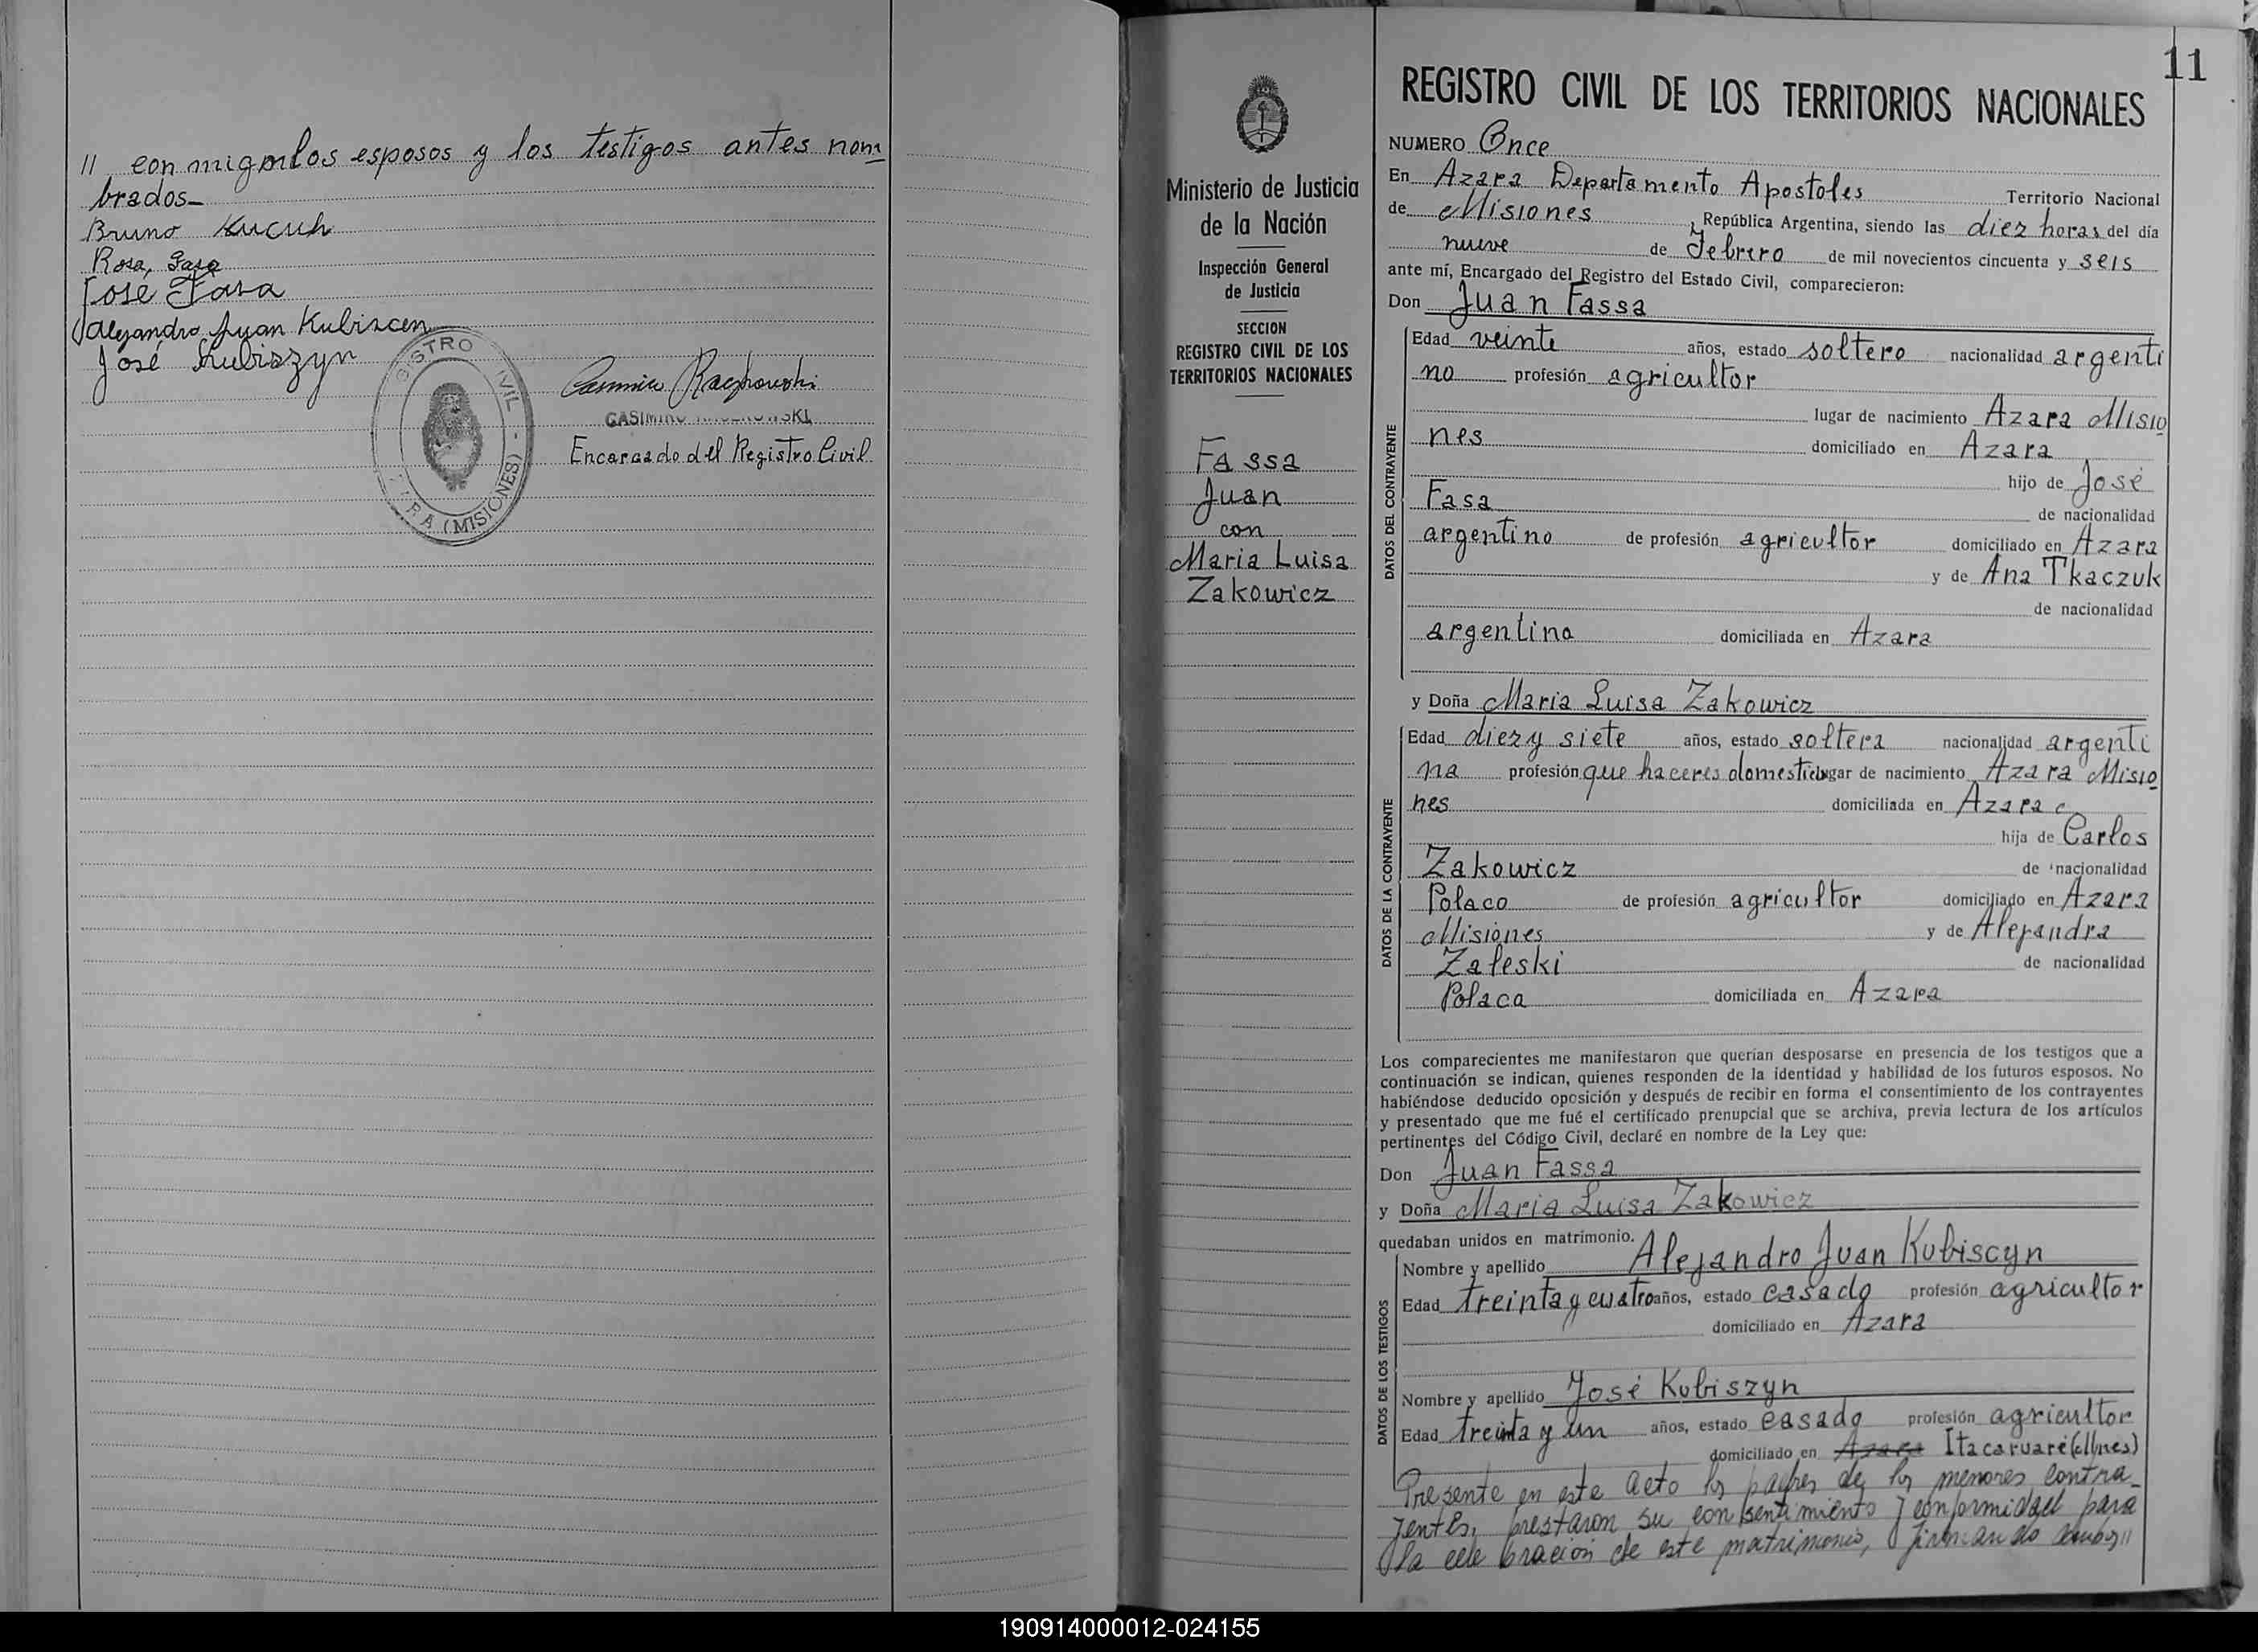 // conmigo los esposos y los testigos antes nom
brados-
Bruno Kucuh
Rosa, Fasa
José Fasa
Alejandro Juan Kubiscen
José Kubiszyn
CASIMIRO
Encargado del Registro Civil
(MISIONES)
Ministerio de Justicia
de la Nación
Inspección General
de Justicia
SECCION
REGISTRO CIVIL DE LOS
TERRITORIOS NACIONALES
Fassa
Juan
con
Maria Luisa
Zakowicz
11
REGISTRO CIVIL DE LOS TERRITORIOS NACIONALES
NUMERO Once
En Azara Departamento Apostoles Territorio Nacional
de Misiones, República Argentina, siendo las diez horas del día
nueve de Febrero de mil novecientos cincuenta y seis
ante mí, Encargado del Registro del Estado Civil, comparecieron:
Don Juan Fassa
DATOS DEL CONTRAYENTE
Edad veinte años, estado soltero nacionalidad argenti
no profesión agricultor
lugar de nacimiento Azara Misio
nes domiciliado en Azara
hijo de José
Fasa de nacionalidad
argentino de profesión agricultor domiciliado en Azara
y de Ana Tkaczuk
de nacionalidad
argentina domiciliada en Azara
y Doña Maria Luisa Zakowicz
DATOS DE LA CONTRAYENTE
Edad diez y siete años, estado soltera nacionalidad argenti
na profesión que haceres domestic lugar de nacimiento Azara Misio
nes domiciliada en Azara
hija de Carlos
Zakowicz de nacionalidad
Polaco de profesión agricultor domiciliado en Azara
Misiones y de Alejandra
Zaleski de nacionalidad
Polaca domiciliada en Azara
Los comparecientes me manifestaron que querían desposarse en presencia de los testigos que a
continuación se indican, quienes responden de la identidad y habilidad de los futuros esposos. No
habiéndose deducido oposición y después de recibir en forma el consentimiento de los contrayentes
y presentado que me fué el certificado prenupcial que se archiva, previa lectura de los artículos
pertinentes del Código Civil, declaré en nombre de la Ley que:
Don Juan Fassa
y Doña Maria Luisa Zakowicz
quedaban unidos en matrimonio.
DATOS DE LOS TESTIGOS
Nombre y apellido Alejandro Juan Kubiscyn
Edad treinta y cuatro años, estado casado profesión agricultor
domiciliado en Azara
Nombre y apellido José Kubiszyn
Edad treinta y un años, estado casado profesión agricultor
domiciliado en Azara Itacaruaré (Mnes)
Presente en este acto los padres de los menores contra-
yentes, prestaron su consentimiento y conformidad para
la celebración de este matrimonio, firmando ambos //
190914000012-024155